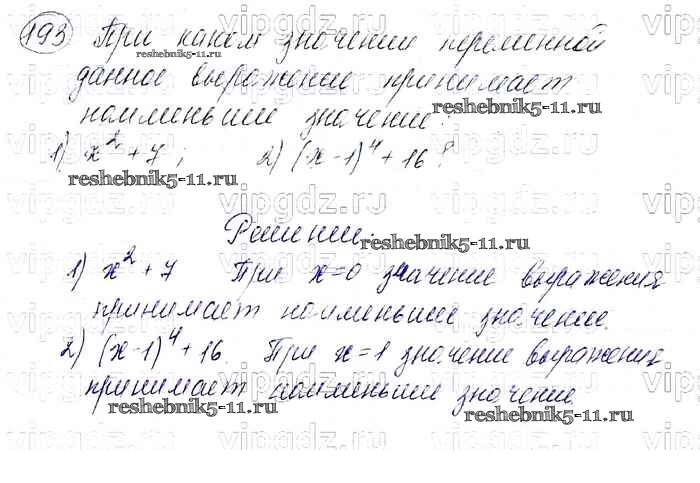 193 При каком значении переменной
данное выражение принимает
наименьшее значение:
1) x² + 7; 2) (x - 1)⁴ + 16?
Решение.
1) x² + 7 При x=0 значение выражения
принимает наименьшее значение.
2) (x-1)⁴ + 16. При x=1 значение выражения
принимает наименьшее значение.
reshebnik5-11.ru
reshebnik5-11.ru
reshebnik5-11.ru
reshebnik5-11.ru
reshebnik5-11.ru
reshebnik5-11.ru
vipgdz.ru